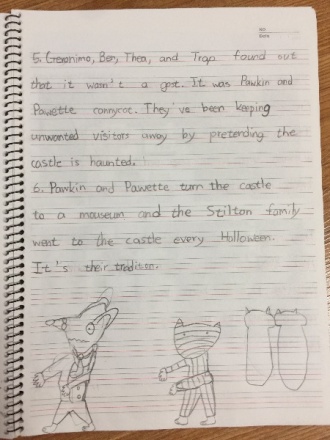 5. Geronimo, Ben, Thea, and Trap found out
that it wasn't a gost. It was Pawkin and
Pawette cannycat. They've been keeping
unwanted visitors away by pretending the
castle is haunted.
6. Pawkin and Pawette turn the castle
to a mouseum and the Stilton family
went to the castle every Halloween.
It's their tradition.